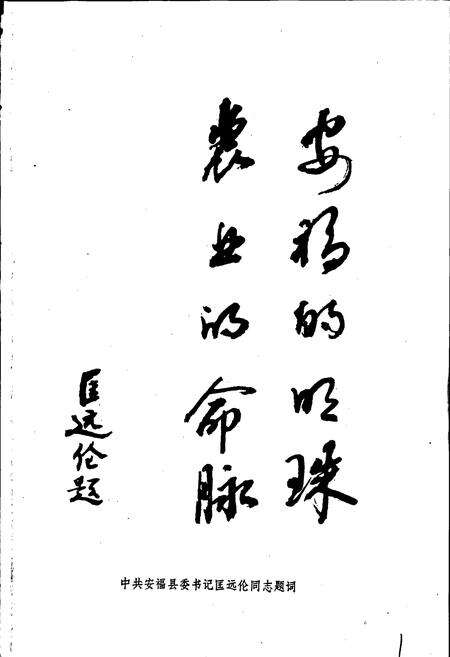 安福的明珠
农业的命脉
匡远伦题
中共安福县委书记匡远伦同志题词
1